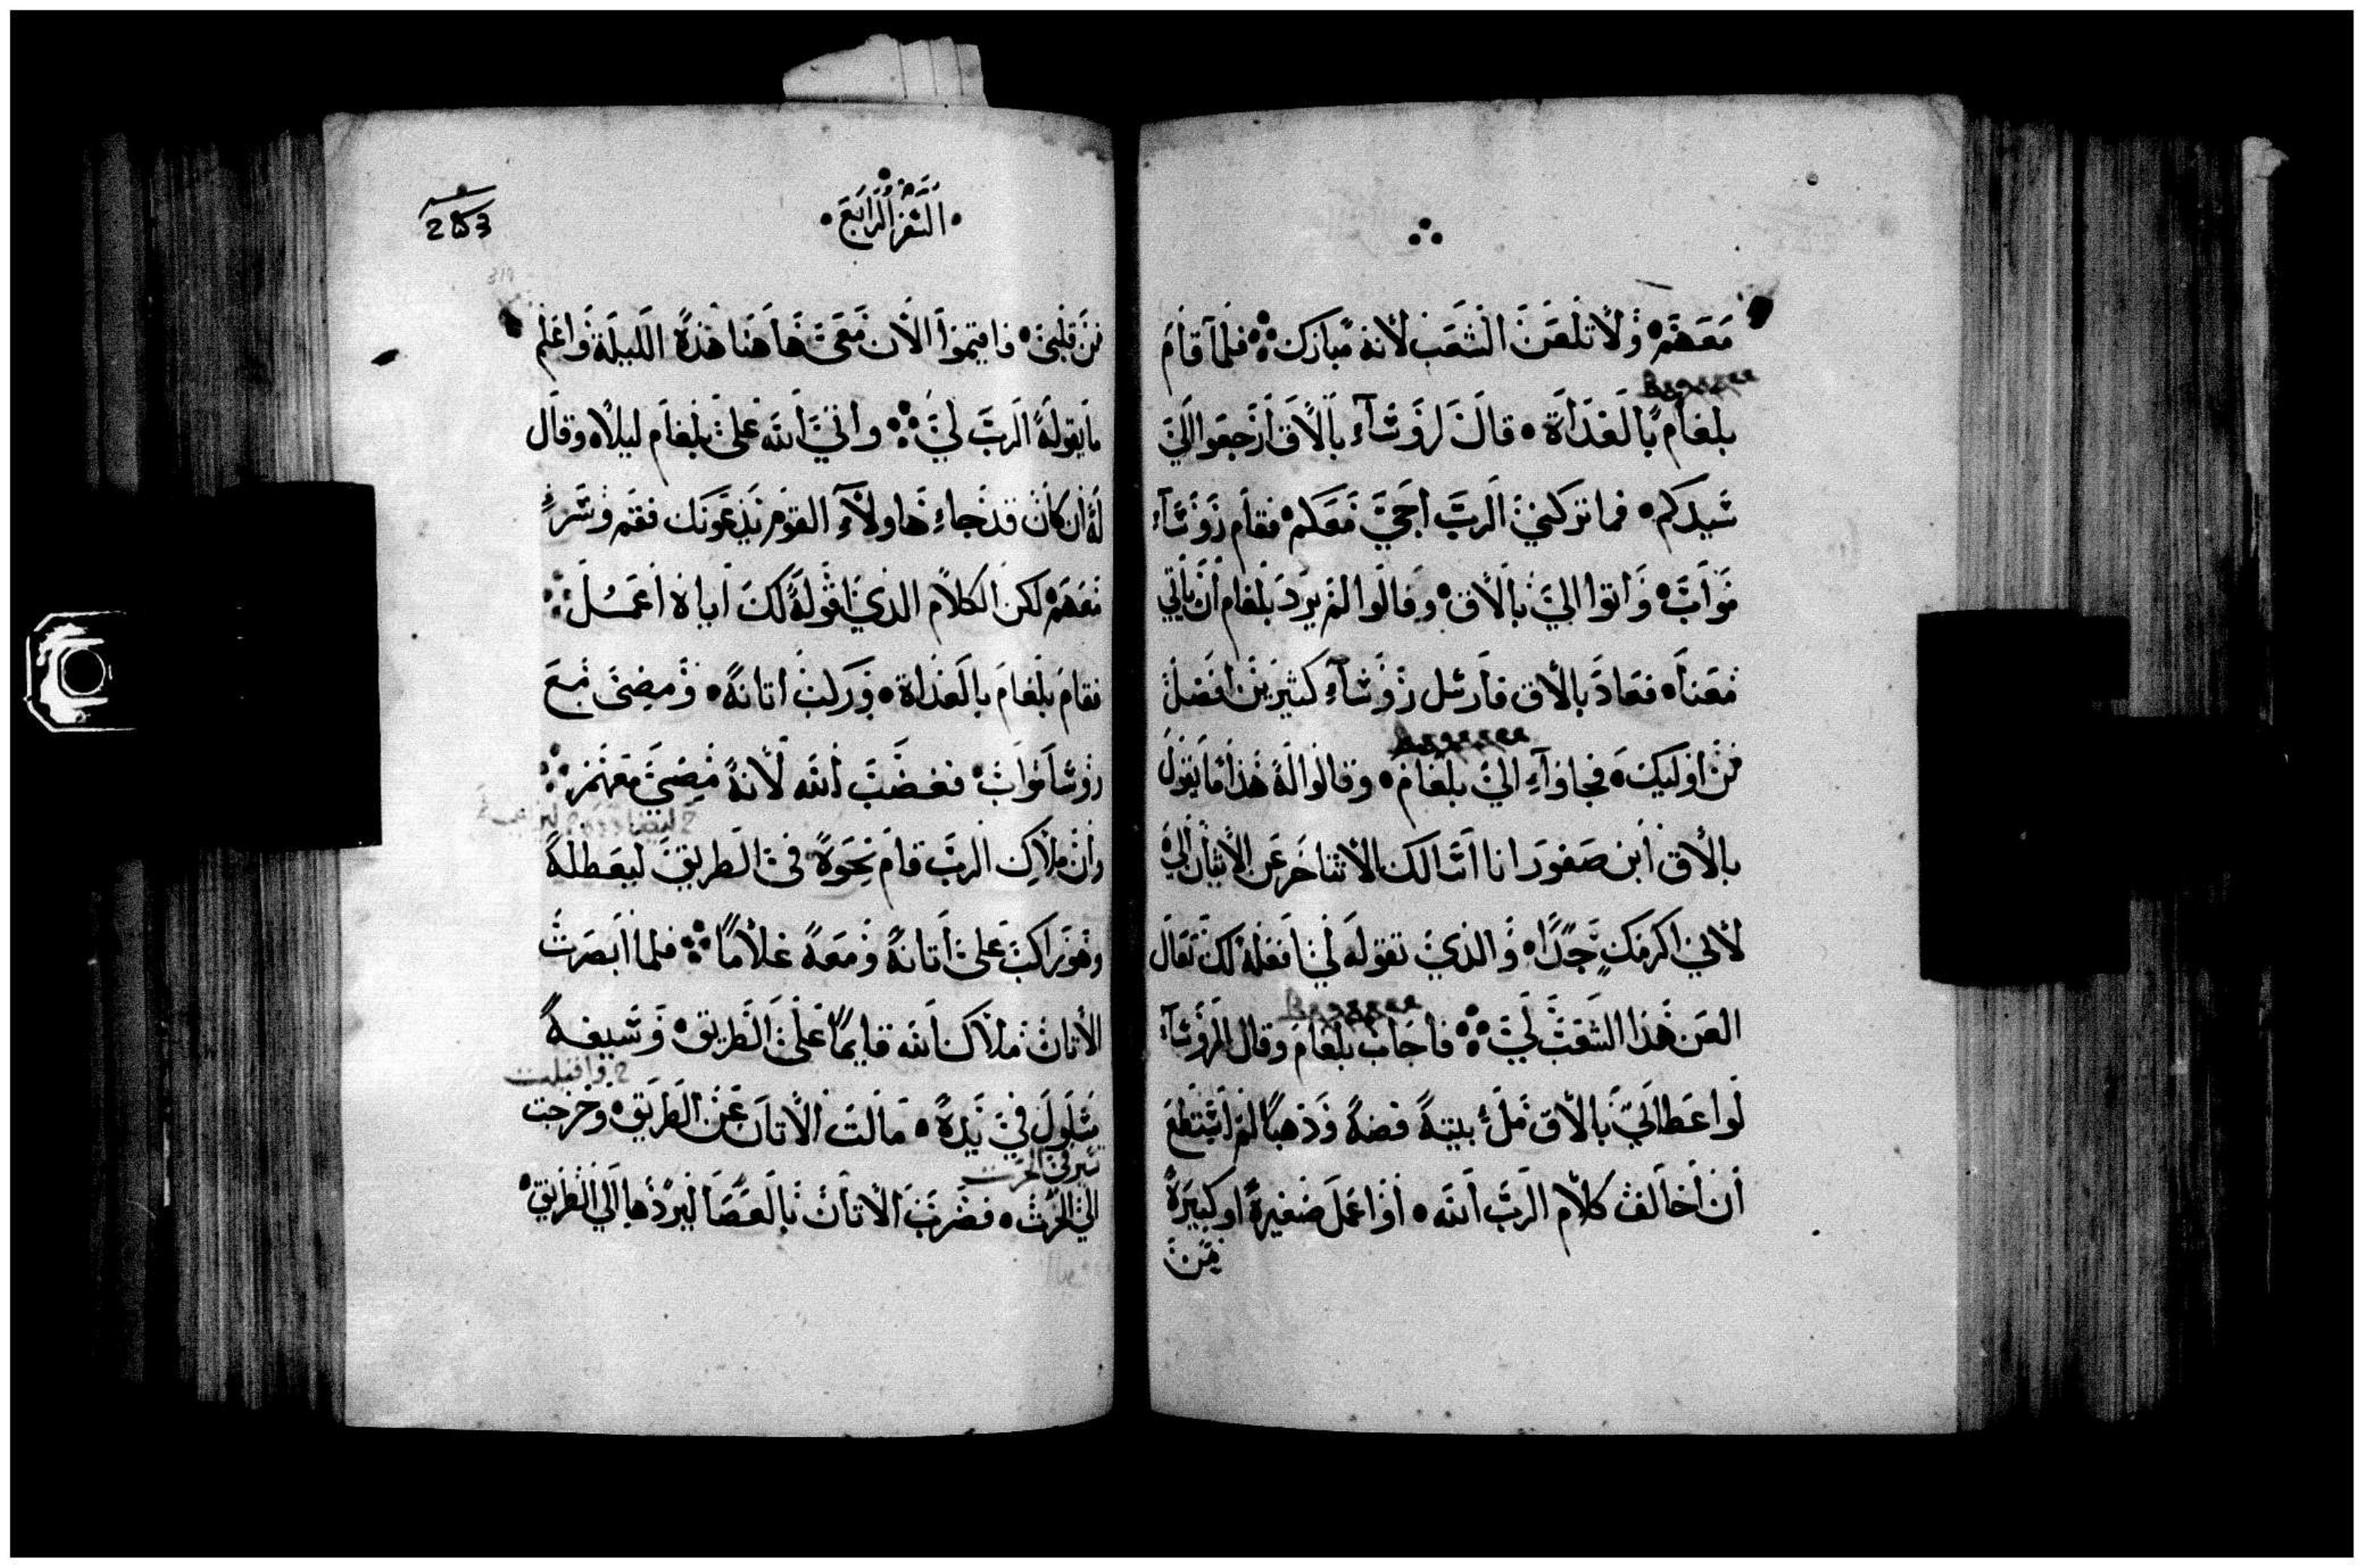 معهم ولا تلعن الشعب لانه مبارك فلما قام
بلعام بالغداة قال لروساء بالاق ارجعوا الي
سيدكم فما تركني الرب اجي معكم فقام روساء
مواب واتوا الي بالاق وقالوا لم يرد بلعام ان ياتي
معنا فعاد بالاق فارسل روساء كثيرين افضل
من اوليك فجاوا الي بلعام وقالوا له هذا ما يقول
بالاق ابن صفور انا اسالك الا تتاخر عن الاتيان الي
لاني اكرمك جدا والذي تقوله لي افعله لك تعال
العن هذا الشعب لي فاجاب بلعام وقال لروساء
لو اعطاني بالاق مل بيته فضة وذهبا لم استطع
ان اخالف كلام الرب الله او اعمل صغيرة او كبيرة
من
السفر الرابع
من قلبي فاقيموا الان معي هاهنا هذه الليلة واعلم
ما يقوله الرب لي واتي الله علي بلعام ليلا وقال
له ان كان قد جاء هاولاء القوم يدعونك فقم وسر
معهم لكن الكلام الذي اقوله لك اياه اعمل
فقام بلعام بالغداة وركب اتانه ومضي مع
روسا مواب فغضب الله لانه مضي معهم
وان ملاك الرب قام نحوه في الطريق ليعطله
وهو راكب علي اتانه ومعه غلاما فلما ابصرت
الاتان ملاك الله قايما علي الطريق وسيفه
مسلول في يده مالت الاتان عن الطريق وخرجت
الي الحرث فضرب الاتان بالعصا ليردها الي الطريق